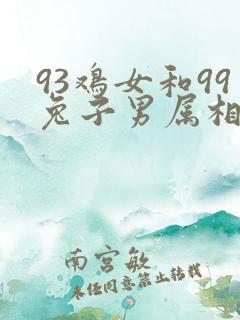 93鸡女和99
兔子男属相
南宫敏
未经同意禁止转载